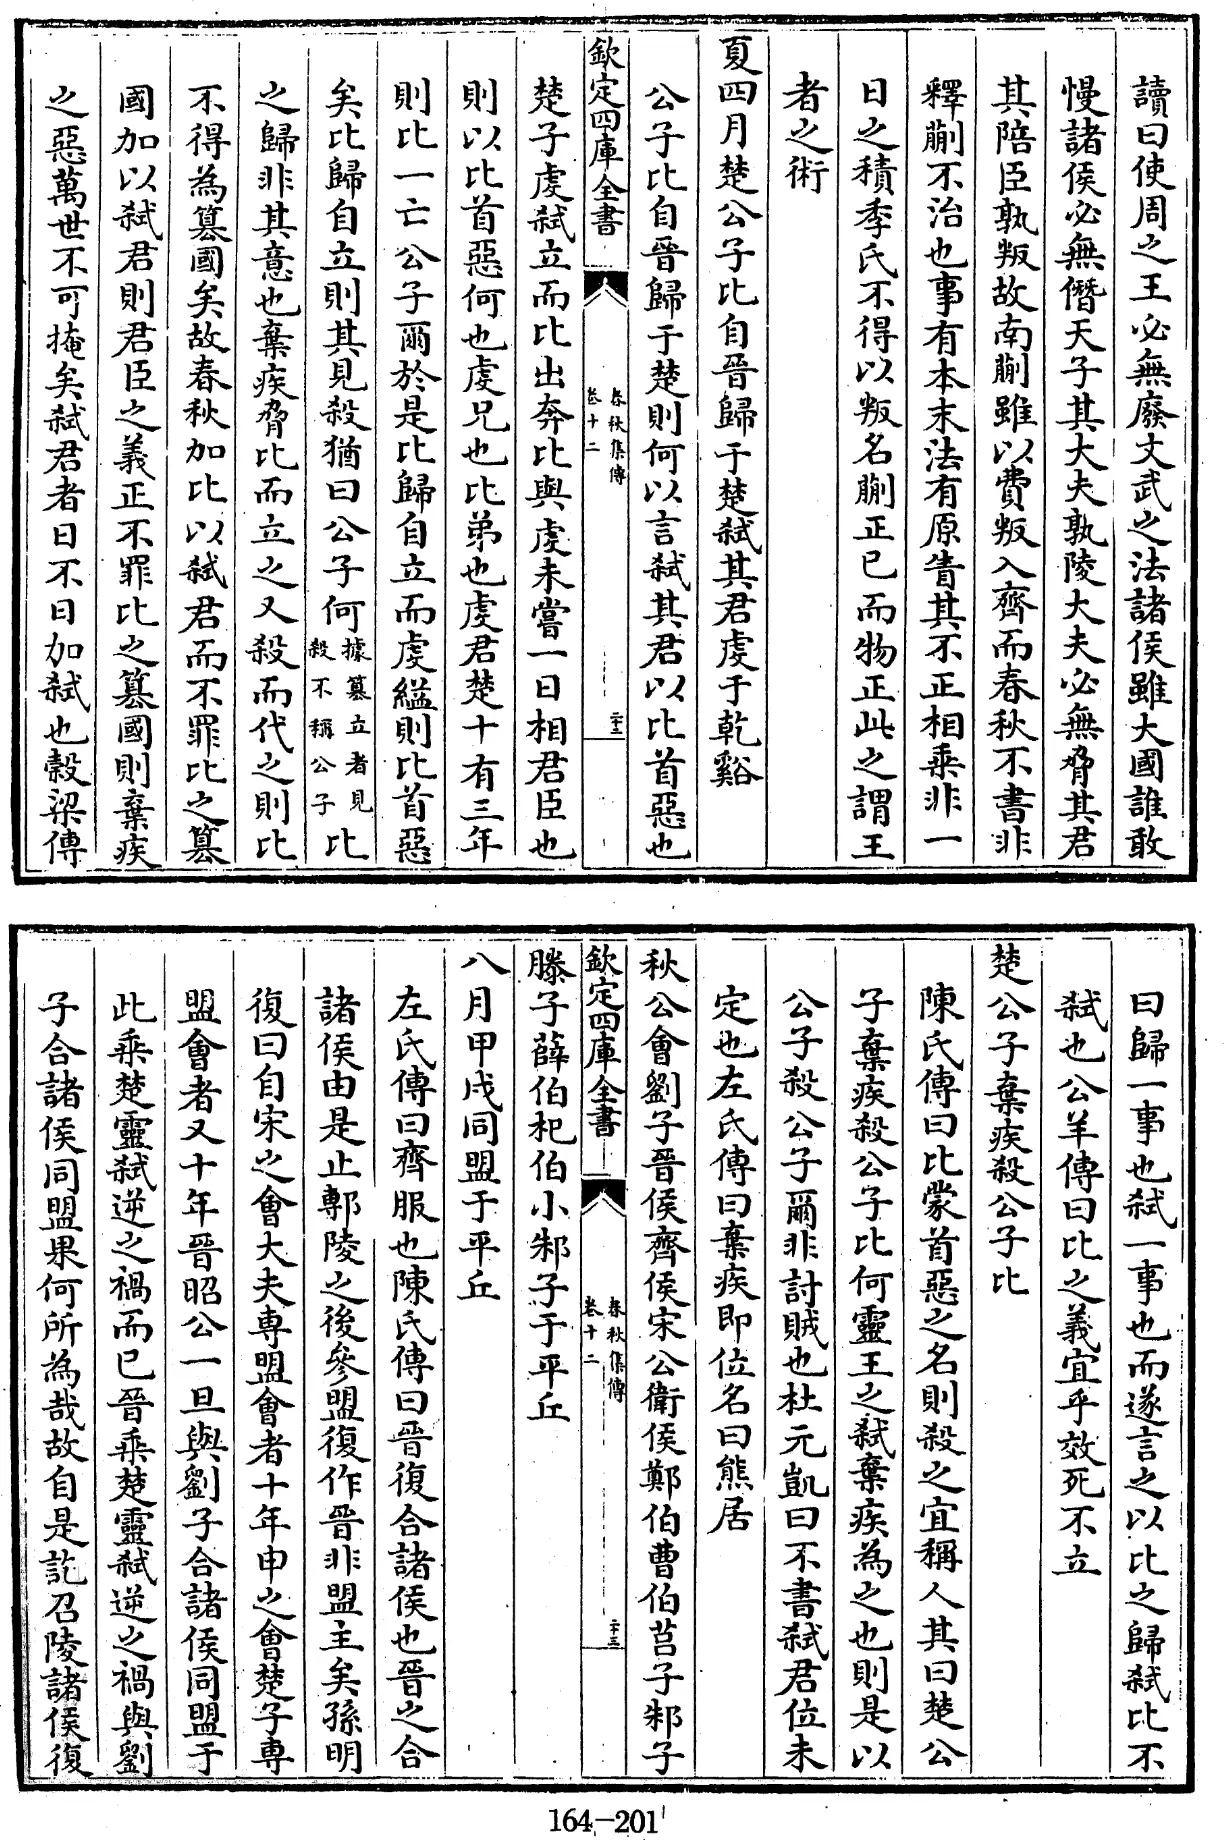 讀曰使周之王必無廢文武之法諸侯雖大國誰敢
慢諸侯必無僭天子其大夫孰陵大夫必無脅其君
其陪臣孰叛故南蒯雖以費叛入齊而春秋不書非
釋蒯不治也事有本末法有原眚其不正相乘非一
日之積季氏不得以叛名蒯正已而物正此之謂王
者之術
夏四月楚公子比自晉歸于楚弑其君虔于乾谿
公子比自晉歸于楚則何以言弑其君以比首惡也
欽定四庫全書
春秋集傳
卷十二
二十三
楚子虔弑立而比出奔比與虔未嘗一日相君臣也
則以比首惡何也虔兄也比弟也虔君楚十有三年
則比一亡公子爾於是比歸自立而虔縊則比首惡
矣比歸自立則其見殺猶曰公子何據篡立者見殺不稱公子比
之歸非其意也棄疾脅比而立之又殺而代之則比
不得為篡國矣故春秋加比以弑君而不罪比之篡
國加以弑君則君臣之義正不罪比之篡國則棄疾
之惡萬世不可掩矣弑君者日不日加弑也穀梁傳
曰歸一事也弑一事也而遂言之以比之歸弑比不
弑也公羊傳曰比之義宜乎效死不立
楚公子棄疾殺公子比
陳氏傳曰比蒙首惡之名則殺之宜稱人其曰楚公
子棄疾殺公子比何靈王之弑棄疾為之也則是以
公子殺公子爾非討賊也杜元凱曰不書弑君位未
定也左氏傳曰棄疾即位名曰熊居
秋公會劉子晉侯齊侯宋公衛侯鄭伯曹伯莒子邾子
欽定四庫全書
春秋集傳
卷十二
二十三
滕子薛伯杞伯小邾子于平丘
八月甲戌同盟于平丘
左氏傳曰齊服也陳氏傳曰晉復合諸侯也晉之合
諸侯由是止鄟陵之後參盟復作晉非盟主矣孫明
復曰自宋之會大夫專盟會者十年申之會楚子專
盟會者又十年晉昭公一旦與劉子合諸侯同盟于
此乘楚靈弑逆之禍而已晉乘楚靈弑逆之禍與劉
子合諸侯同盟果何所為哉故自是訖召陵諸侯復
164-201